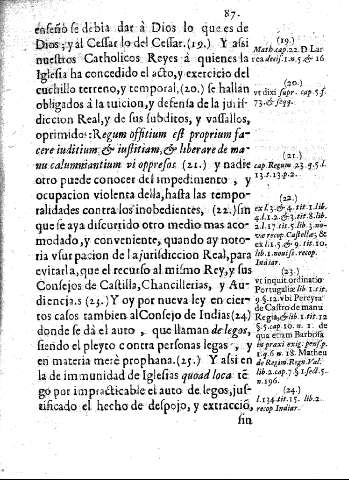 87.
enseñò se debia dar à Dios lo que es de
Dios; y al Cessar lo del Cessar. (19.) Y assi
nuestros Catholicos Reyes à quienes la
Iglesia ha concedido el acto, y exercicio del
cuchillo terreno, y temporal, (20.) se hallan
obligados à la tuicion, y defensa de la juris-
diccion Real, y de sus subditos, y vassallos,
oprimidos: Regum offitium est proprium fa-
cere iuditium & iustitiam, & liberare de ma-
nu calumniantium vi oppresos. (21.) y nadie
otro puede conocer del impedimento, y
ocupacion violenta della, hasta las tempo-
ralidades contra los inobedientes, (22.) sin
que se aya discurrido otro medio mas aco-
modado, y conveniente, quando ay noto-
ria vsurpacion de la jurisdiccion Real, para
evitarla, que el recurso al mismo Rey, y sus
Consejos de Castilla, Chancillerias, y Au-
diencias. (23.) Y oy por nueva ley en cier-
tos casos tambien al Consejo de Indias (24)
donde se dà el auto, que llaman de legos,
siendo el pleyto contra personas legas, y
en materia merè prophana. (25.) Y assi en
la de immunidad de Iglesias quoad loca tē
go por impracticable el auto de legos, jus-
tificado el hecho de despojo, y extracció,
sin
(19.)
Math. cap. 22. D. Lar
rea decis. 1. n. 5 & 16
(20.)
vt dixi supr. cap. 5. f.
73. & seqq.
(21.)
cap. Regum 23. q. 5. l.
13. t. 13. p. 2.
(22.)
ex l. 3. & 4. tit. 1. lib.
4. l. 2. & 3. tit. 8. lib.
2. l. 17. tit. 5. lib. 3. no-
væ recop. Castellæ, &
ex l. 1. 5 & 9. tit. 10.
lib. 1. noviss. recop.
Indiar.
(23.)
vt inquit ordinatio
Portugaliæ lib. 1. tit.
9. §. 12. vbi Pereyra
de Castro de manu
Regia, & lib. 1. tit. 12
§. 5. cap. 10. n. 1. de
qua etam Barbosa
in praxi exig. pensp.
1. q. 6 n. 18. Matheu
de Regim. Reg. Val.
lib. 2. cap. 7. § 1. sect. 5.
n. 196.
(24.)
l. 134. tit. 15. lib. 2.
recop Indiar.